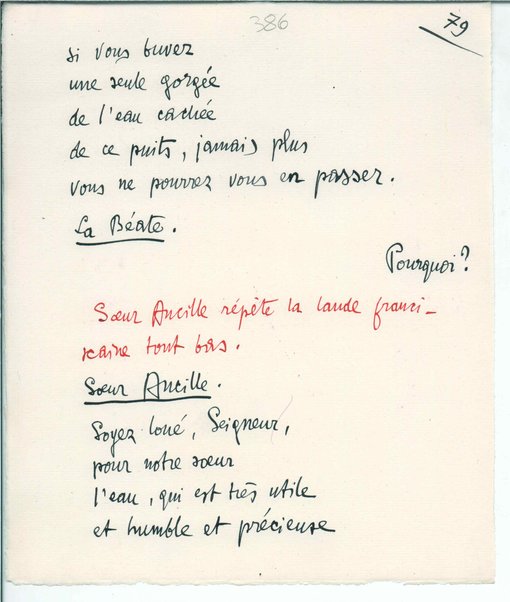 386
79
si vous buvez
une seule gorgée
de l'eau cachée
de ce puits, jamais plus
vous ne pourrez vous en passer.
La Béate.
Pourquoi?
Sœur Ancille répète la laude franci-
scaine tout bas.
Sœur Ancille.
Soyez loué, Seigneur,
pour notre sœur
l'eau, qui est très utile
et humble et précieuse